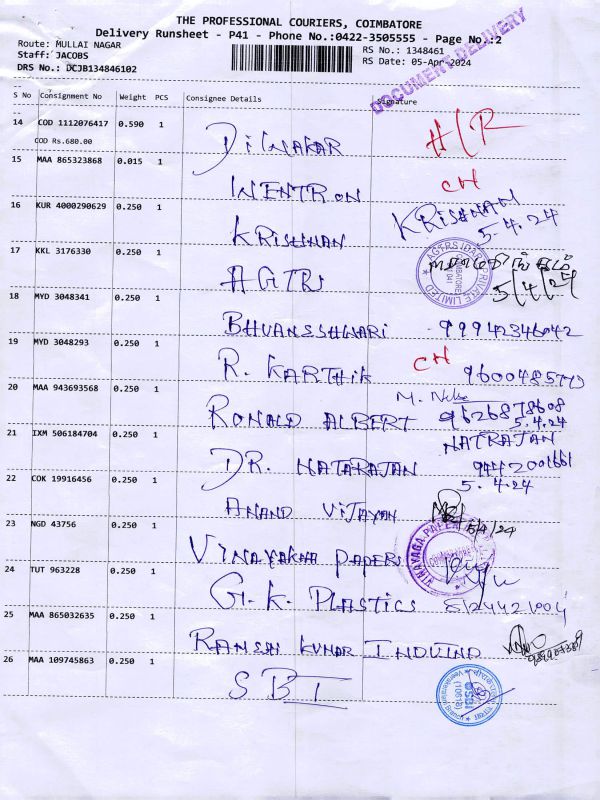 THE PROFESSIONAL COURIERS, COIMBATORE
Delivery Runsheet - P41 - Phone No.:0422-3505555 - Page No.:2
Route: MULLAI NAGAR
Staff: JACOBS
DRS No.: DCJB134846102
RS No.: 1348461
RS Date: 05-Apr-2024
DOCUMENT DELIVERY
S No Consignment No Weight PCS Consignee Details Signature
14 COD 1112076417 0.590 1 DIWAKAR
COD Rs.680.00
15 MAA 865323868 0.015 1 WENTRON CH
16 KUR 4000290629 0.250 1 KRISHNAN KRISHNAN
5.4.24
17 KKL 3176330 0.250 1 AGTRS 5/4/24
18 MYD 3048341 0.250 1 BHUANESHWARI 99942346042
19 MYD 3048293 0.250 1 R. KARTHIK CH
20 MAA 943693568 0.250 1 RONALD ALBERT 9626878608
5.4.24
21 IXM 506184704 0.250 1 DR. NATARAJAN NATRAJAN
9442001661
5.4.24
22 COK 19916456 0.250 1 ANAND VIJAYAN 5/4/24
23 NGD 43756 0.250 1 VINAYAKHA PAPERS
24 TUT 963228 0.250 1 G.K. PLASTICS
25 MAA 865032635 0.250 1 RANJAN KUMAR INDUIND
26 MAA 109745863 0.250 1 SBI